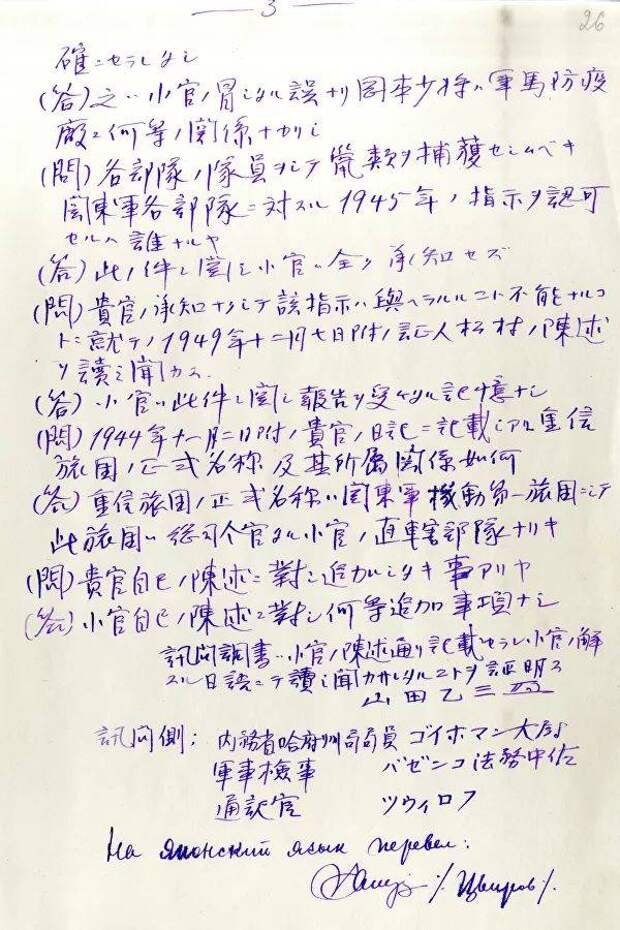 3
26
確ニセラレタシ
(答) 之ハ小官ノ冒シタル誤ナリ岡本少将ハ軍馬防疫
廠ニ何等ノ関係ナカリシ
(問) 各部隊ノ隊員ヲシテ鼠類ヲ捕獲セシムベキ
関東軍各部隊ニ対スル1945年ノ指示ヲ認可
セルハ誰ナルヤ
(答) 此ノ件ニ関シ小官ハ全ク承知セズ
(問) 貴官ノ承知ナクシテ該指示ハ與ヘラルルコト不能ナルコ
トニ就テノ1949年十二月七日附ノ証人松村ノ陳述
ヲ讀ミ聞カス
(答) 小官ハ此件ニ関シ報告ヲ受ケタル記憶ナシ
(問) 1944年十一月二日附ノ貴官ノ日記ニ記載シアル重信
旅団ノ正式名称及其所属関係如何
(答) 重信旅団ノ正式名称ハ関東軍機動第一旅団ニシテ
此旅団ハ総司令官タル小官ノ直轄部隊ナリキ
(問) 貴官自己ノ陳述ニ對シ追加シタキ事アリヤ
(答) 小官自己ノ陳述ニ對シ何等追加事項ナシ
訊問調書ハ小官ノ陳述通リ記載セラレ小官ノ解
スル日語ニテ讀ミ聞カサレタルコトヲ証明ス
山田乙三
訊問側; 内務省哈府州司局員 ゴイホマン大尉
軍事検事 バゼンコ法務中佐
通訳官 ツウィロフ
На японский язык перевел:
/Цвиров/.